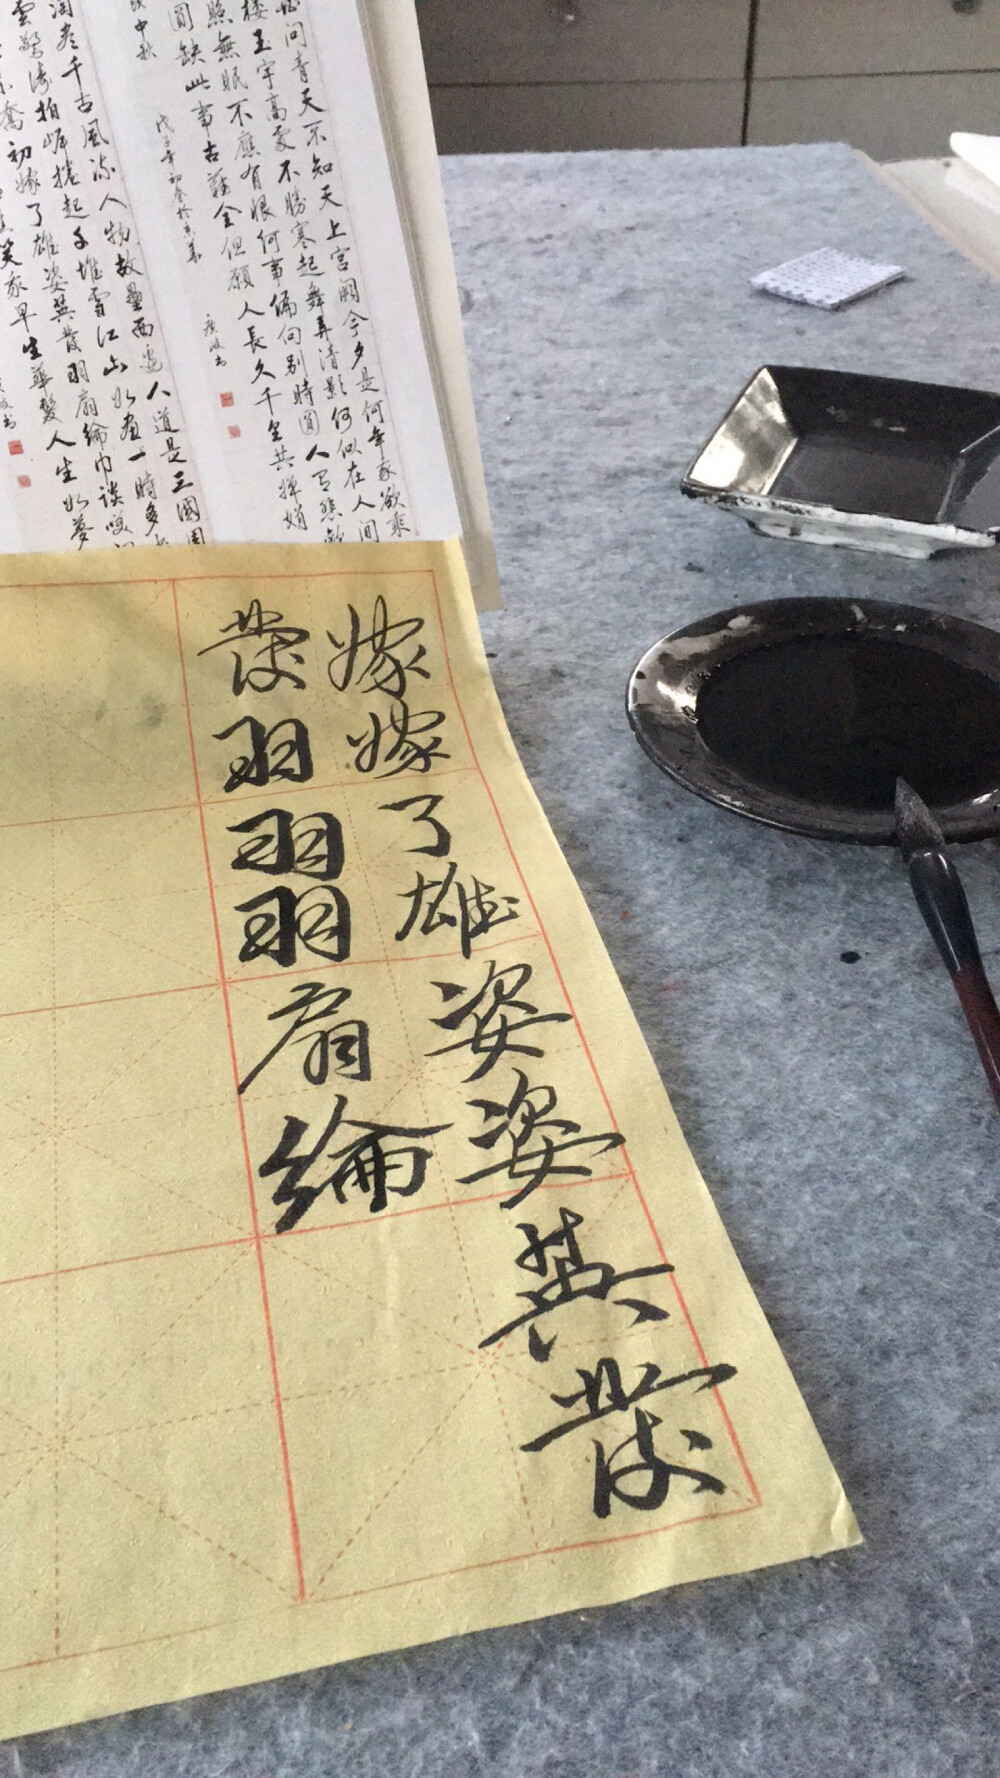 問青天不知天上宮闕今夕是何年我欲乘
樓玉宇高處不勝寒起舞弄清影何似在人間
照無眠不應有恨何事偏向別時圓人有悲歡
圓缺此事古難全但願人長久千里共嬋娟
中秋
書
淘盡千古風流人物故壘西邊人道是三國周
雲驚濤拍岸捲起千堆雪江山如畫一時多
喬初嫁了雄姿英發羽扇綸巾談笑間
笑我早生華髮人生如夢
書
嫁嫁了雄姿姿英發
發羽羽羽扇綸